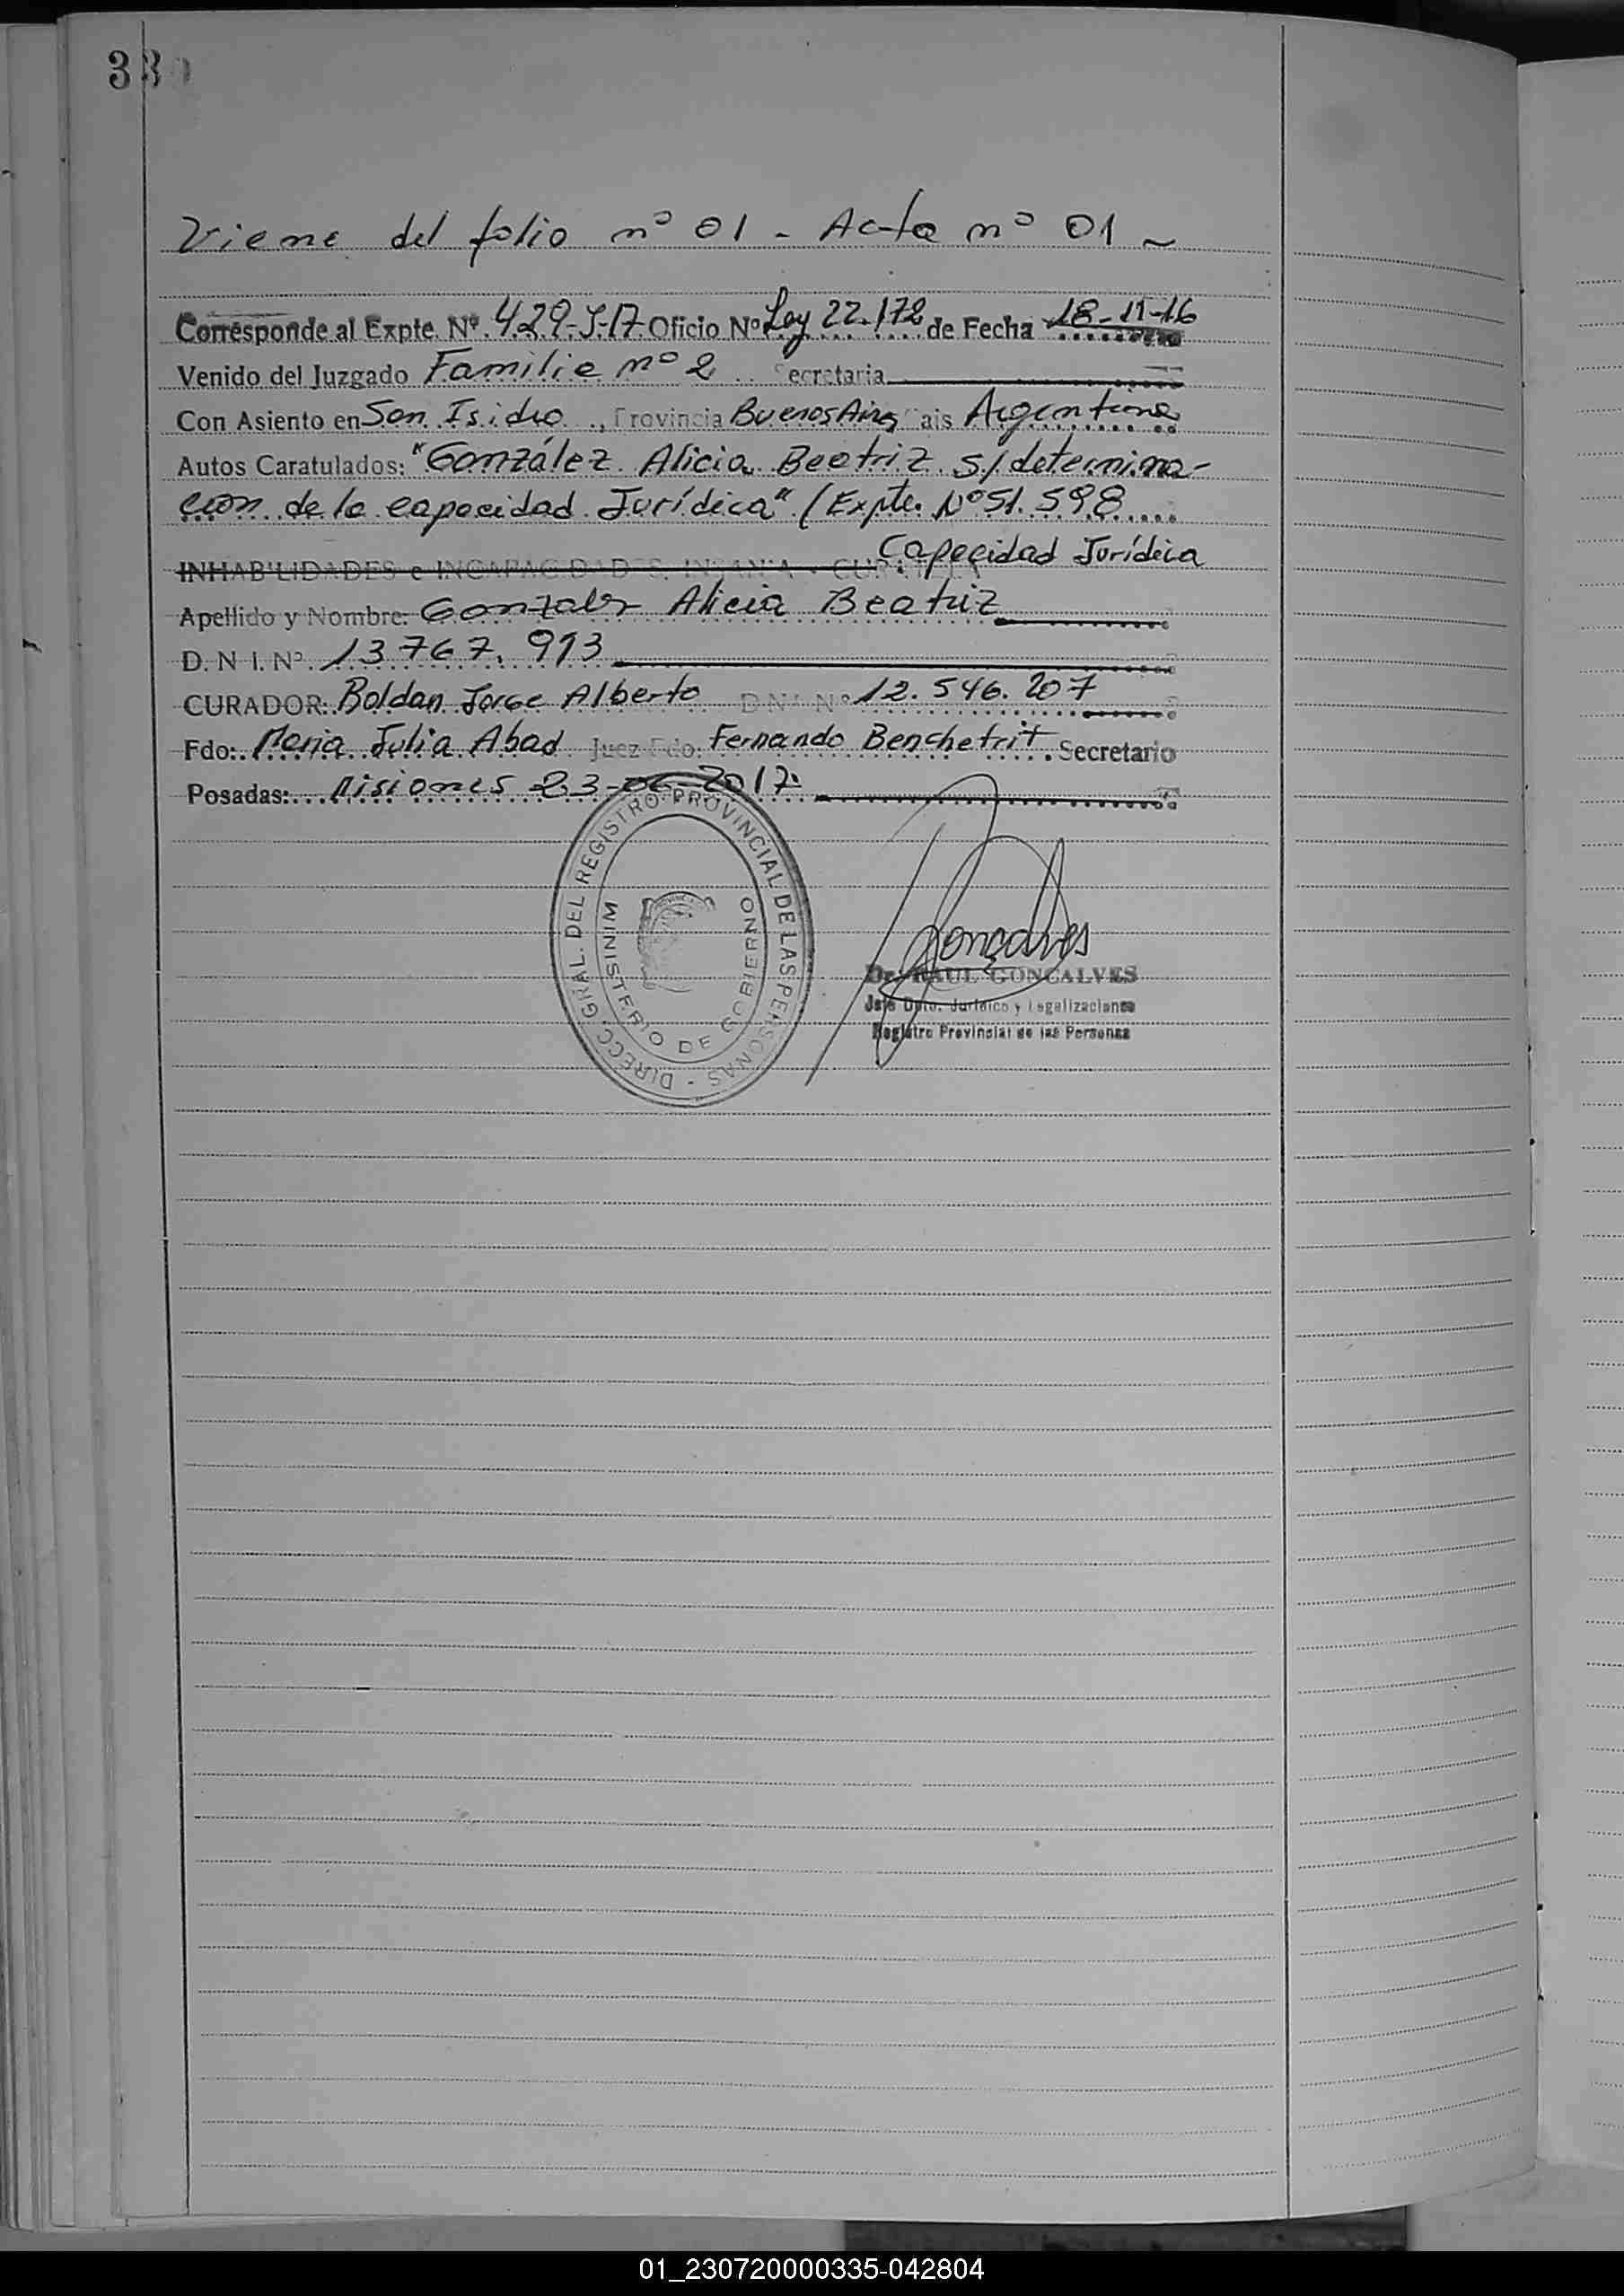 33
Viene del folio nº 01 - Acta nº 01 ~
Corresponde al Expte. Nº 429-J-17 Oficio Nº Ley 22.172 de Fecha 18-11-16
Venido del Juzgado Familia nº 2 Secretaria
Con Asiento en San Isidro, Provincia Buenos Aires Pais Argentina
Autos Caratulados: "González Alicia Beatriz s/determina-
cion de la capacidad Jurídica" (Expte. Nº 51.598
Capacidad Jurídica
INHABILIDADES e INCAPACIDADES, INSANIA - CURATELA
Apellido y Nombre: Gonzalez Alicia Beatriz
D. N. I. Nº. 13.767.913
CURADOR: Boldan Jorge Alberto DNI Nº 12.546.207
Fdo: Maria Julia Abad Juez Fdo: Fernando Benchetrit Secretario
Posadas: Misiones 23-06-2017.
DIRECC. GRAL. DEL REGISTRO PROVINCIAL DE LAS PERSONAS -
MINISTERIO DE GOBIERNO
Goncalves
Dr. RAUL GONCALVES
Jefe Dpto. Jurídico y Legalizaciones
Registro Provincial de las Personas
01_230720000335-042804